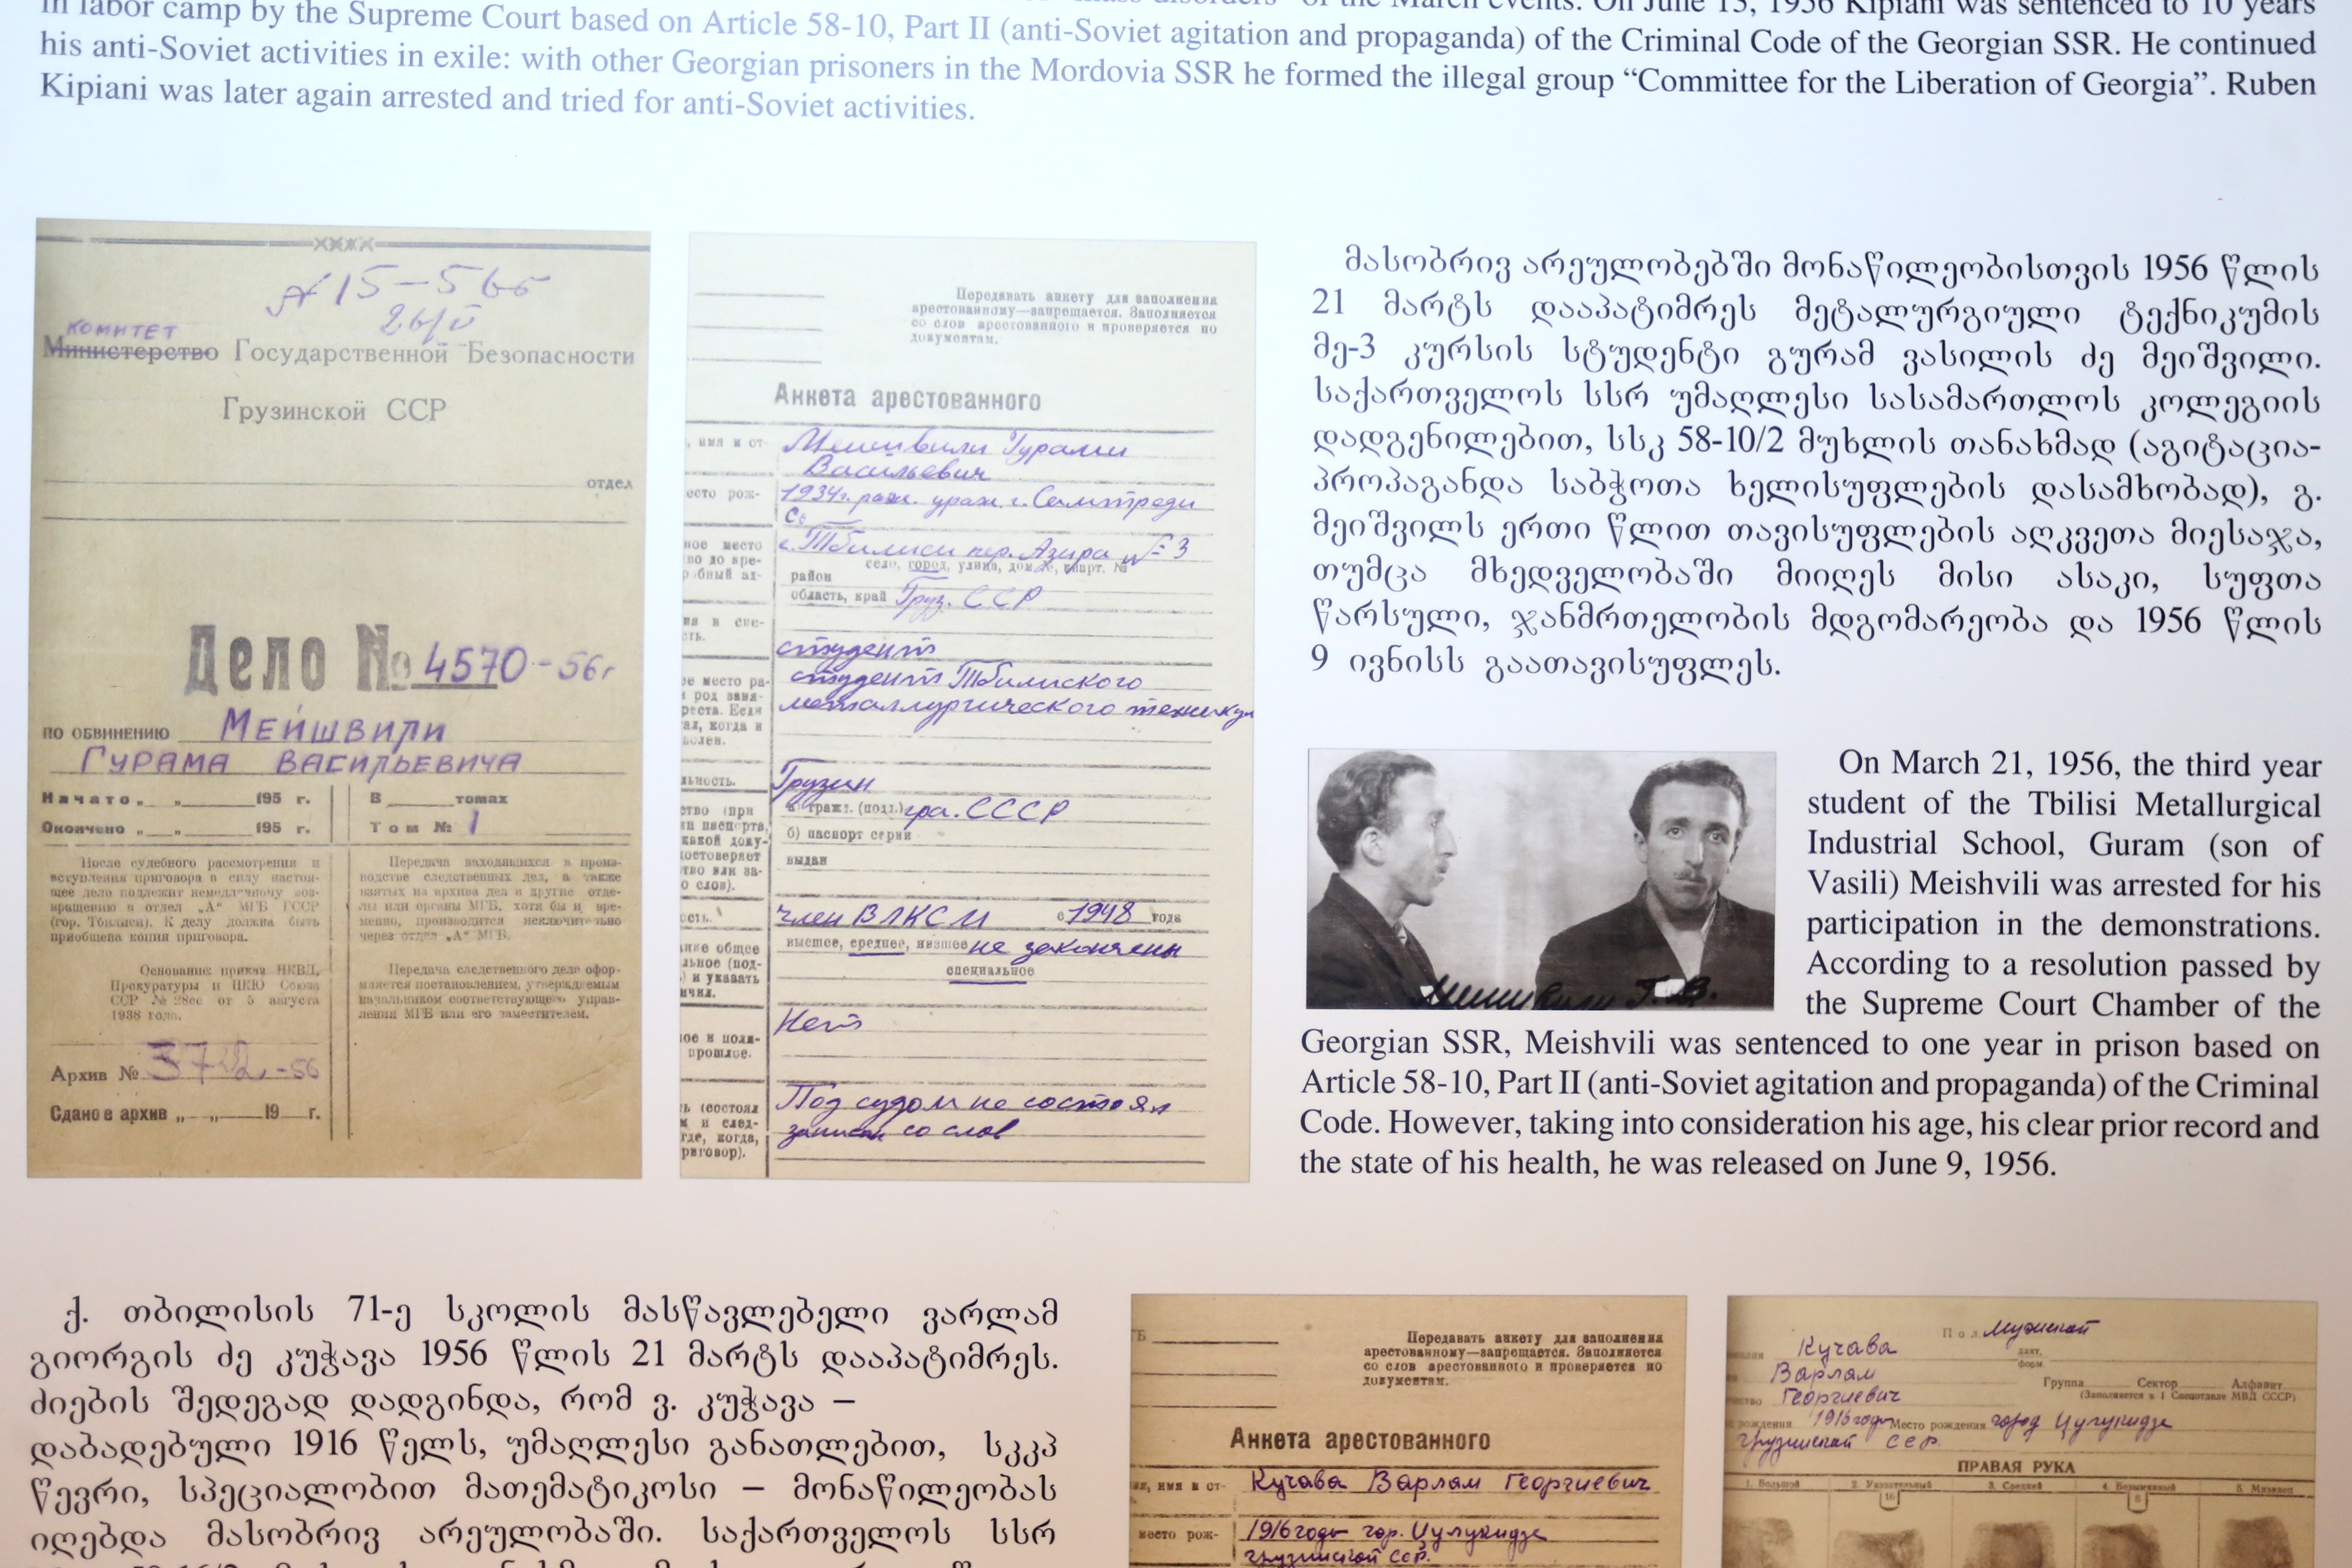 in labor camp by the Supreme Court based on Article 58-10, Part II (anti-Soviet agitation and propaganda) of the Criminal Code of the Georgian SSR. He continued
his anti-Soviet activities in exile: with other Georgian prisoners in the Mordovia SSR he formed the illegal group “Committee for the Liberation of Georgia”. Ruben
Kipiani was later again arrested and tried for anti-Soviet activities.
комитет
Министерство Государственной Безопасности
Грузинской ССР
отдел
Дело № 4570-56г
по обвинению Мейшвили
Гурама Васильевича
Начато „ „ 195 г.
Окончено „ „ 195 г.
В томах
Том № 1
После судебного рассмотрения и
вступления приговора в силу настоя-
щее дело подлежит немедленному воз-
вращению в отдел „А“ МГБ ГССР
(гор. Тбилиси). К делу должна быть
приобщена копия приговора.
Основание: приказ НКВД,
Прокуратуры и НКЮ Союза
ССР № 28сс от 5 августа
1938 года.
Передача находящихся в произ-
водстве следственных дел, а также
взятых из архива дел в другие отде-
лы или органы МГБ, хотя бы и вре-
менно, производится исключительно
через отдел „А“ МГБ.
Передача следственного дела офор-
мляется постановлением, утверждаемым
начальником соответствующего управ-
ления МГБ или его заместителем.
Архив №
Сдано в архив „ „ 19 г.
Передавать анкету для заполнения
арестованному—запрещается. Заполняется
со слов арестованного и проверяется по
документам.
Анкета арестованного
, имя и от- Меишвили Гурами
Васильевич
есто рож- 1934г. рожд. урож. г. Самтреди
ное место г. Тбилиси пер. Азира № 3
село, город, улица, дом №, кварт. №
район
область, край Груз. ССР
студент
студент Тбилиского
металлургического технику
Грузин
гра. СССР
б) паспорт серии
выдан
член ВЛКСМ с 1948 года
высшее, среднее, низшее не закончены
специальное
Нет
Под судом не состоял
записан со слов
მასობრივ არეულობებში მონაწილეობისთვის 1956 წლის
21 მარტს დააპატიმრეს მეტალურგიული ტექნიკუმის
მე-3 კურსის სტუდენტი გურამ ვასილის ძე მეიშვილი.
საქართველოს სსრ უმაღლესი სასამართლოს კოლეგიის
დადგენილებით, სსკ 58-10/2 მუხლის თანახმად (აგიტაცია-
პროპაგანდა საბჭოთა ხელისუფლების დასამხობად), გ.
მეიშვილს ერთი წლით თავისუფლების აღკვეთა მიესაჯა,
თუმცა მხედველობაში მიიღეს მისი ასაკი, სუფთა
წარსული, ჯანმრთელობის მდგომარეობა და 1956 წლის
9 ივნისს გაათავისუფლეს.
On March 21, 1956, the third year
student of the Tbilisi Metallurgical
Industrial School, Guram (son of
Vasili) Meishvili was arrested for his
participation in the demonstrations.
According to a resolution passed by
the Supreme Court Chamber of the
Georgian SSR, Meishvili was sentenced to one year in prison based on
Article 58-10, Part II (anti-Soviet agitation and propaganda) of the Criminal
Code. However, taking into consideration his age, his clear prior record and
the state of his health, he was released on June 9, 1956.
ქ. თბილისის 71-ე სკოლის მასწავლებელი ვარლამ
გიორგის ძე კუჭავა 1956 წლის 21 მარტს დააპატიმრეს.
ძიების შედეგად დადგინდა, რომ ვ. კუჭავა –
დაბადებული 1916 წელს, უმაღლესი განათლებით, სკკპ
წევრი, სპეციალობით მათემატიკოსი – მონაწილეობას
იღებდა მასობრივ არეულობაში. საქართველოს სსრ
Передавать анкету для заполнения
арестованному—запрещается. Заполняется
со слов арестованного и проверяется по
документам.
Анкета арестованного
ия, имя и от- Кучава Варлам Георгиевич
место рож- 1916 году гор. Цулукидзе
грузинской ССР.
Пол мужской
Кучава
Варлам
Георгиевич
Группа Сектор Алфавит
(Заполняется в 1 Спецотделе МВД СССР)
рождения 1916 году Место рождения город Цулукидзе
грузинской ССР.
ПРАВАЯ РУКА
1. Большой 2. Указательный 3. Средний 4. Безымянный 5. Мизинец